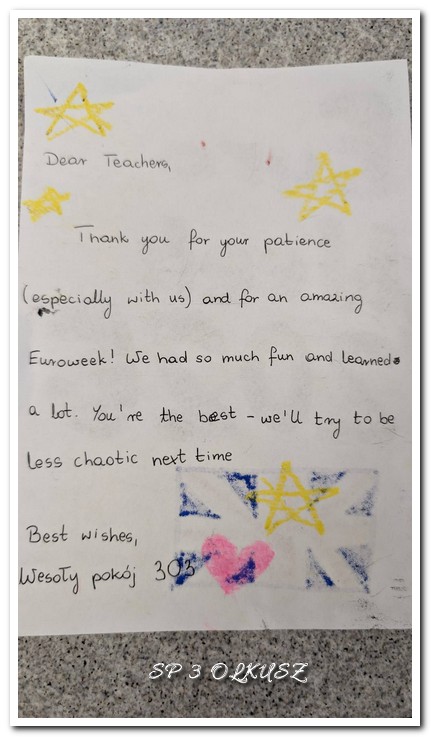 Dear Teachers,
Thank you for your patience
(especially with us) and for an amazing
Euroweek! We had so much fun and learned
a lot. You're the best - we'll try to be
less chaotic next time
Best wishes,
Wesoły pokój 303
SP 3 OLKUSZ